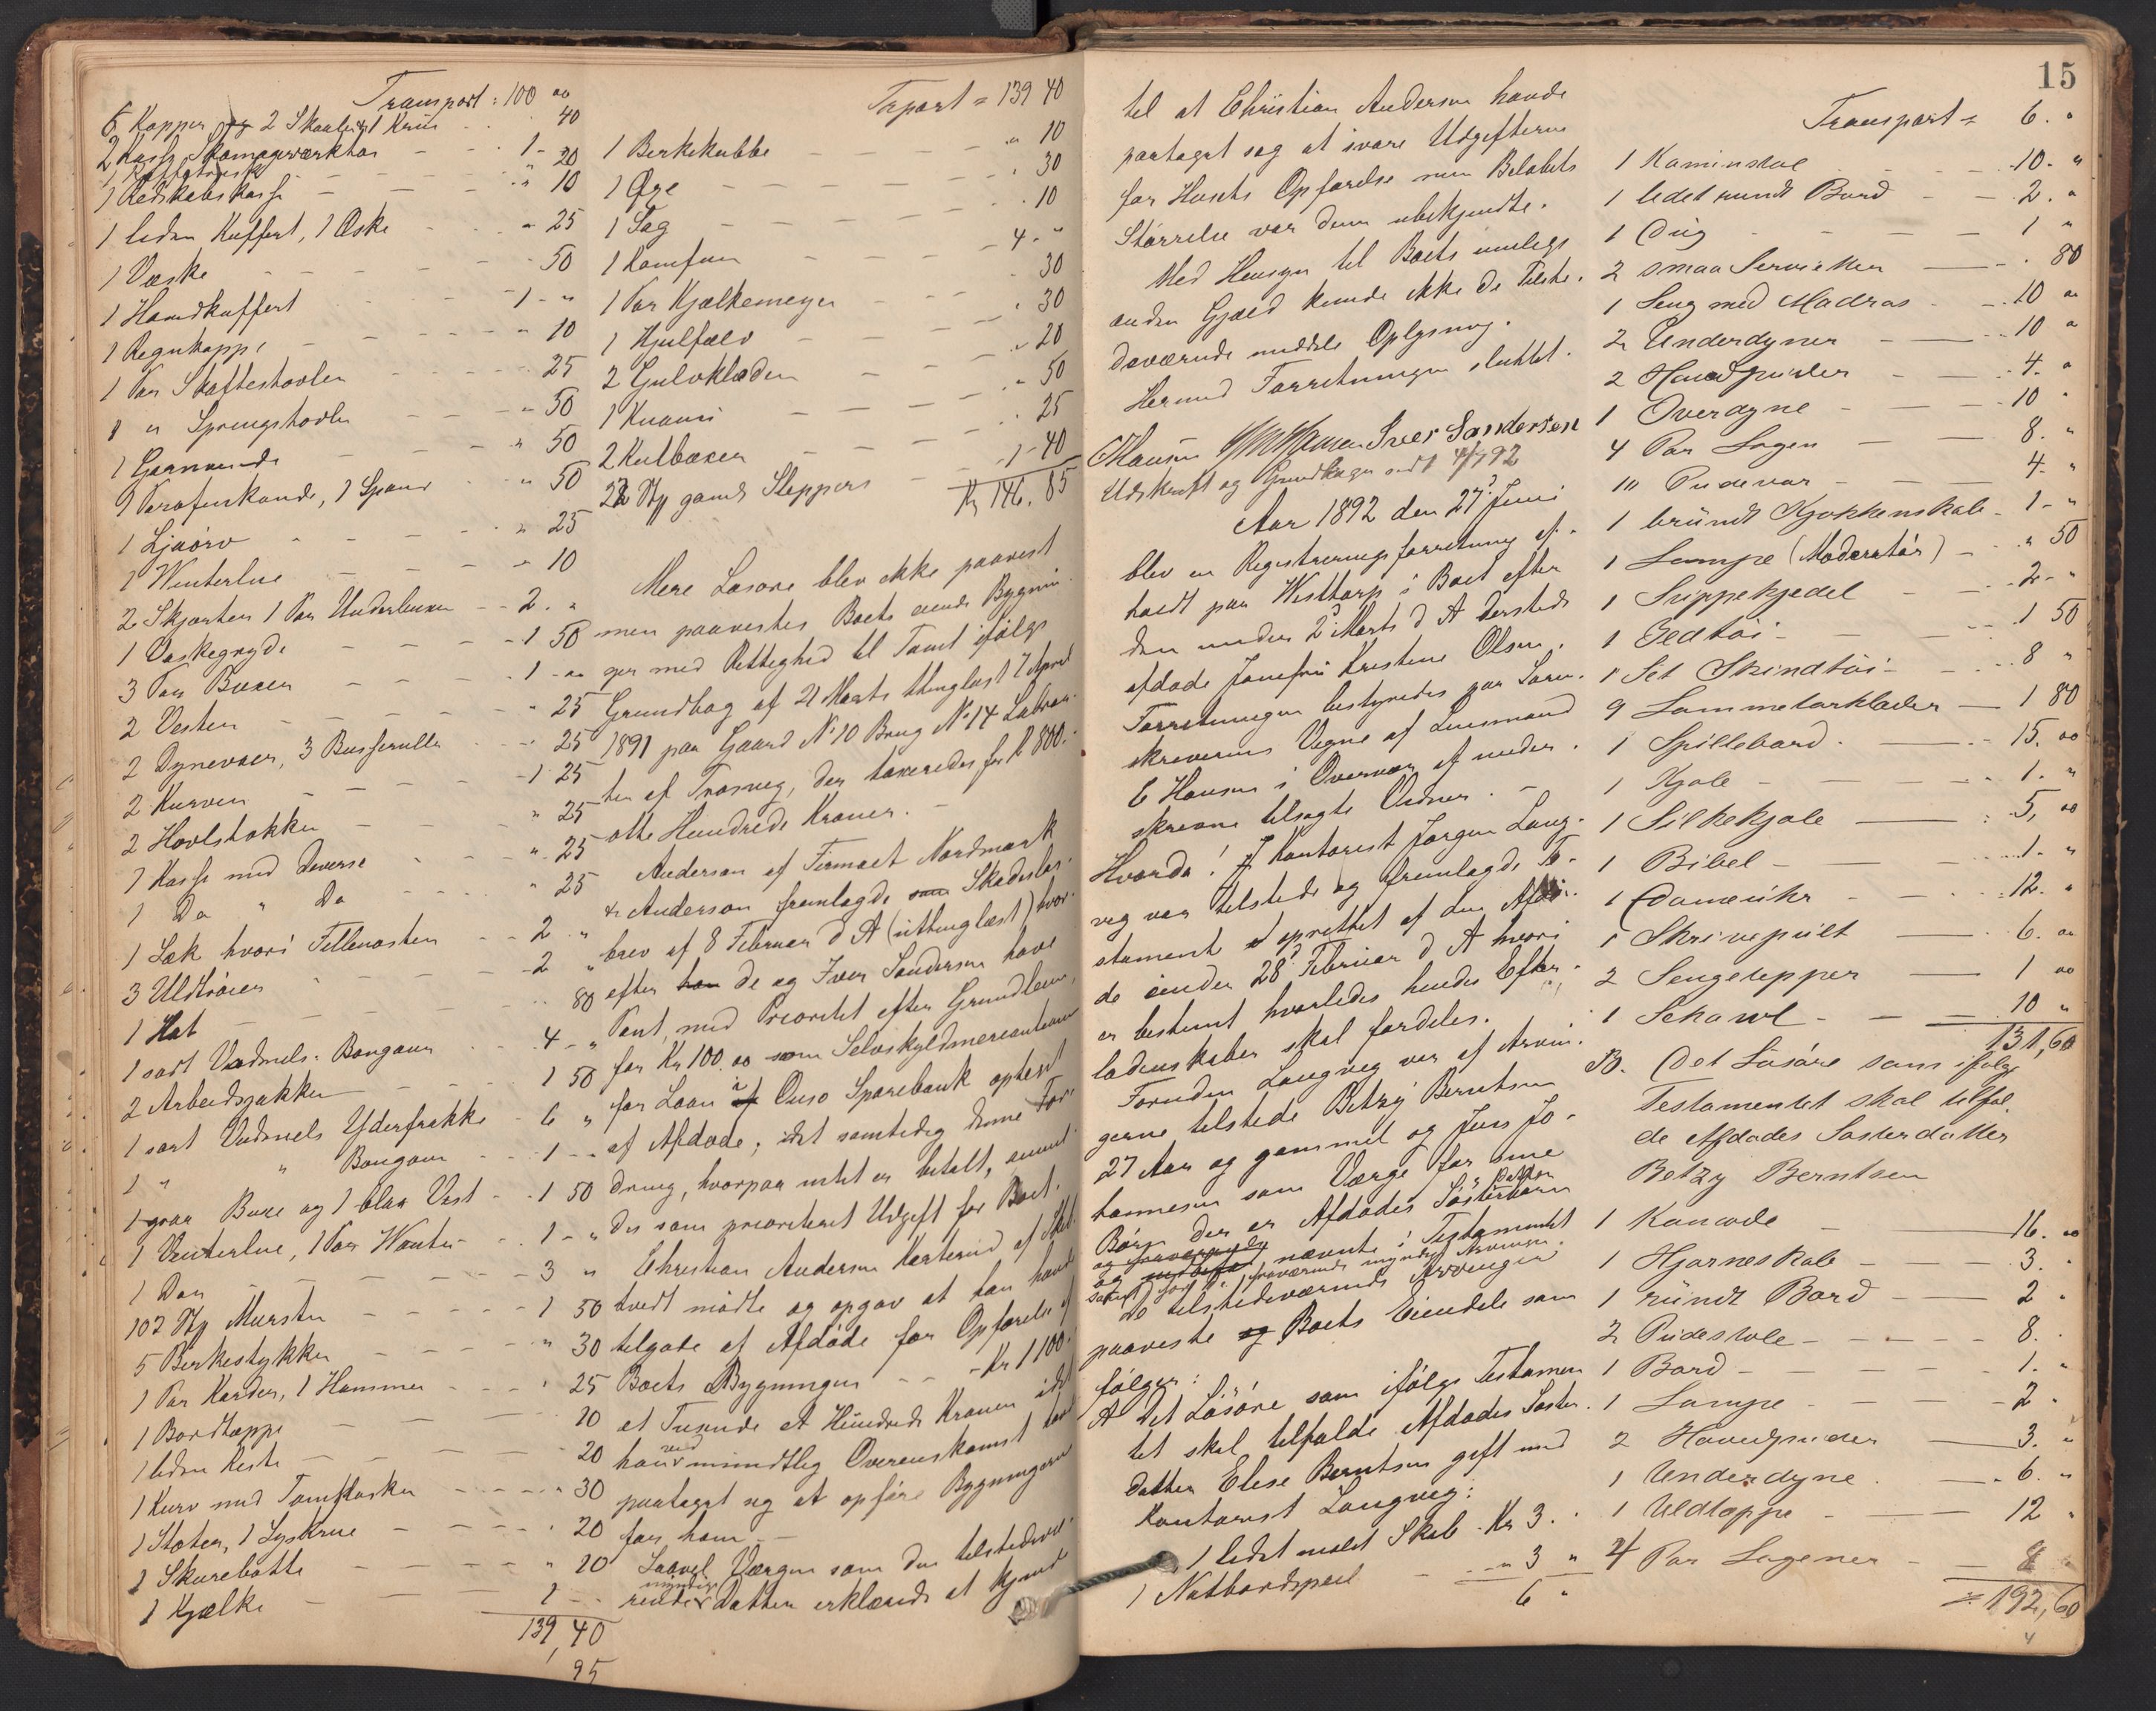 Transport = 100 00
6 Kopper og 2 Skaaler 1 Krus 40
2 Kasser Skomagerværktøi 1 -
1 Kaffebrænder 20
1 Redskabskasse " 10
1 liden Kuffert, 1 Æske " 25
1 Væske 50
1 Haandkuffert 1 - "
1 Regnkappe " 10
1 Par Skaftestøvler 25
1 " Springstøvler " 50
1 Garnvinde " 50
1 Parafinkande, 1 Spand " 50
1 Ljaaorv " 25
1 Vinterlue " 10
2 Skjorter 1 Par Underbuxer 2. "
1 Vaskegryde 1 50
3 Par Buxer 1 - "
2 Vester " 25
2 Dynevaer, 3 Busseruller " 25
2 Kurver 1 25
2 Høvlstokker " 25
1 Kasse med Diverse " 25
1 Do " Do " 25
1 Sæk hvori Filleposter 2 "
3 Uldtrøier 2 "
1 Hat 80
1 sort Vadmels Bongour 4 - "
2 Arbeidsjakker 1 50
1 sort Vadmels Yderfrakke 6 "
1 " " Bongour 1 - -
1 graa Buxe og 1 blaa Vest 1 50
1 Vinterlue, 1 Par Vanter 1 - "
1 Dør 3 "
102 Stk Mursten 1 50
5 Birkestykker " 30
1 Par Karder, 1 Hammer " 25
1 Bordtæppe 20
1 liden Kiste 20
1 Kurv med Tomflasker " 30
1 Stoter, 1 Lyskrue 20
1 Skurebøtte " 20
1 Kjælke 1 -
139,40
95
Trport = 139 40
1 Birkekubbe " 10
1 Øxe " 30
1 Sag " 10
1 Komfur 4 - "
1 Par Kjælkemeyer " 30
1 Hjulfælv " 30
2 Gulvklæder " 20
1 Knavri " 50
2 Kulbøxer " 25
22 Stk gamle Sleppers 1 - 40
Kr 146. 85
Mere Løsøre blev ikke paavist
men paavistes Boets eiende Bygnin-
ger med Rettighed til Tomt ifølge
Grundbog af 21 Marts thinglæst 7 April
1891 paa Gaard No 10 Brug No 14 Labraa-
ten af Trosvig, der taxeredes for Kr 800.-
otte Hundrede Kroner. -
Anderson af Firmaet Nordmark
& Anderson fremlagde som Skadesløs-
brev af 8 Februar d A (uthinglæst) hvor-
efter han de og Iver Sandersen have
Pant, med Prioritet efter Grundleien,
for Kr 100.00 som Selvskyldnercautionister
for Laan i Onsø Sparebank optaget
af Afdøde; idet samtidig denne For-
dring, hvorpaa intet er betalt, anmel-
des som prioriteret Udgift for Boet.
Christian Andersen Kasterud af Skjel-
tvedt mødte og opgav at han havde
tilgode af Afdøde for Opførelse af
Boets Bygninger - - Kr 1100.
et Tusinde et Hundrede Kroner idet
han ved mundtlig Overenskomst havde
paataget sig at opføre Bygningerne
for ham. -
Saavel Værgen som den tilstedevæ-
rende myndige Datter erklærede at kjende
15
til at Christian Andersen havde
paataget sig at svare Udgifterne
for Husets Opførelse men Beløbets
Størrelse var dem ubekjendte.
Med Hensyn til Boets mulige
anden Gjæld kunde ikke de Tilste-
deværende meddele Oplysning.
Hermed Forretningen sluttet.
EHansen Iver Sandersen
Udskrift og Grundbogen meddt 4/7 92
Aar 1892 den 27de Juni
blev en Registreringsforretning af-
holdt paa Visttorp i Boet efter
den under 2den Marts d A dersteds
afdøde Jomfru Kristine Olsen.
Forretningen bestyredes paa Soren-
skriverens Vegne af Lensmand
E Hansen i Overvær af neden-
skrevne tilsagte Vidner. -
Hvorda! Kontorist Jørgen Lang-
vig var tilstede og fremlagde Te-
stament oprettet af den Afdø-
de under 28de Februar d A hvori
er bestemt hvorledes hendes Efter-
ladenskaber skal fordeles.
Foruden Langvig var af Arvin-
gerne tilstede Betzy Berntsen
27 Aar og gammel og Jens Jo-
hannesen som Værge for sine
Børn der er Afdødes Søsterbørn
og nævnte i Testamentet
fraværende myndige Arvinger.
De tilstedeværende Arvinger
paaviste og Boets Eiendele som
følger:
A Det Løsøre som ifølge Testamen-
tet skal tilfalde Afdødes Søster-
datter Elise Berntsen gift med
Kontorist Langvig:
1 lidet malet Skab - Kr 3. "
1 Natbordspeil - " 3 "
6 "
Transport = 6. "
1 Kaminstol 10. "
1 lidet rundt Bord 2. "
1 Dug 1 "
2 smaa Servietter " 80
1 Seng med Madras 10 "
2 Underdyner 10 "
2 Hovedpuder 4. "
1 Overdyne 10 "
4 Par Lagen 8. "
10 Pudevar 4. "
1 brundt Kjøkkenskab 1 - "
1 Lampe (Moderatør) " 50
1 Suppekjedel 2 - "
1 Ildtøi 1 50
1 Set Skindtøi 8 "
9 Lommetørklæder 1 80
1 Spillebord 15. 00
1 Kjole 1. "
1 Silkekjole 5, 00
1 Bibel 1. "
1 Dameuhr 12. "
1 Skrivepult 6. "
2 Sengetepper 1 00
1 Schawl 10 "
131,60
B. Det Løsøre som ifølge
Testamentet skal tilfal-
de Afdødes Søsterdatter
Betzy Berntsen
1 Komode 16. 00
1 Hjørneskab 3. "
1 rundt Bord 2 "
2 Pudestole 8. "
1 Bord 1. "
1 Lampe 2 "
2 Hovedpuder 3. "
1 Underdyne 6. "
1 Uldtæppe 12 "
4 Par Lagener 8 "
= 192,60